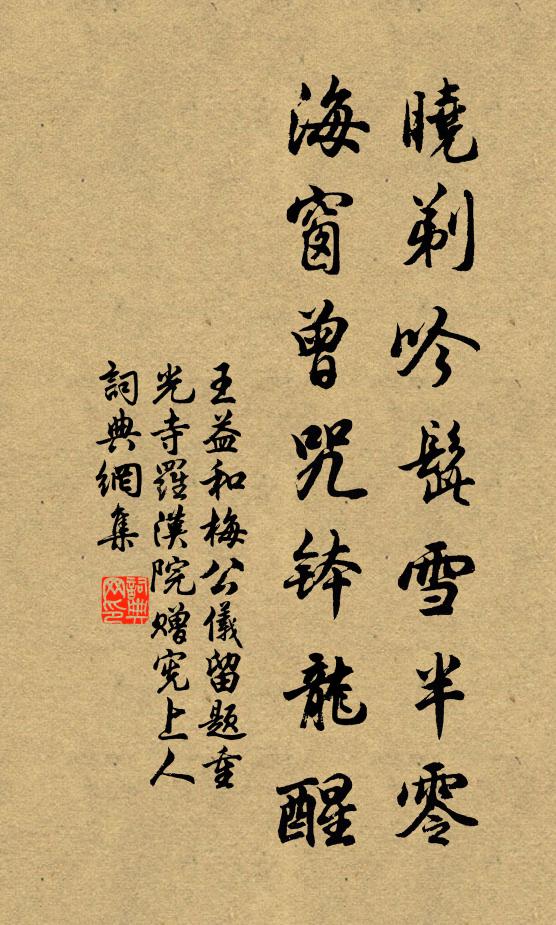 曉剃吟髭雪半零
海窗曾咒鉢龍醒
王益和梅公儀留題重
光寺羅漢院贈宪上人
詞典網集
詞典
网印